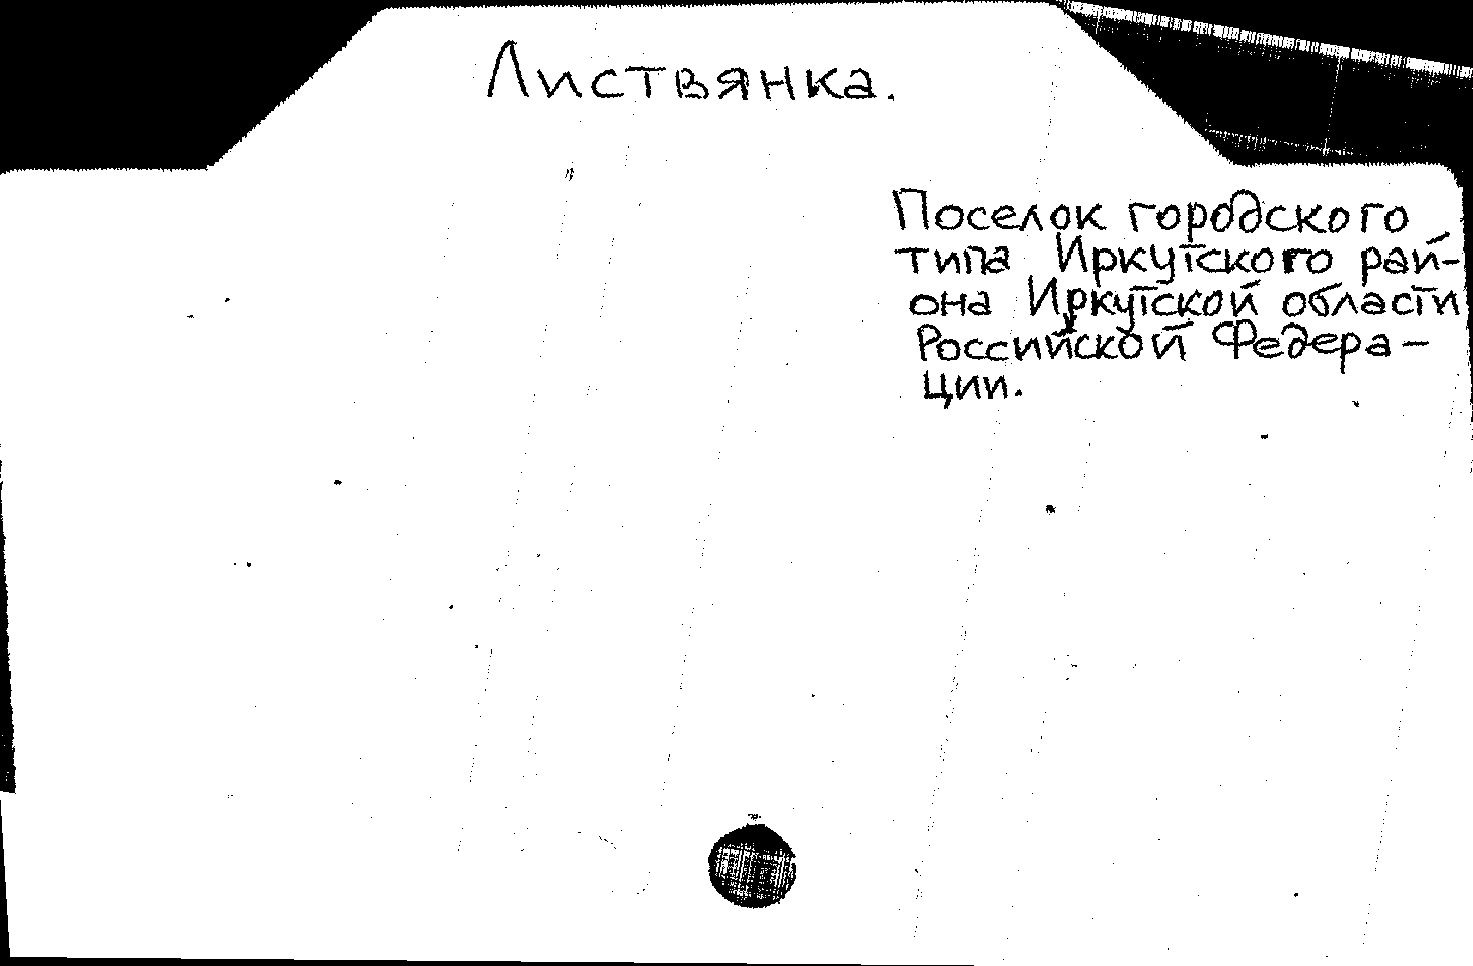 Листвянка.
Поселок городского
типа Иркутского рай-
она Иркутской области
Российской Федера-
ции.